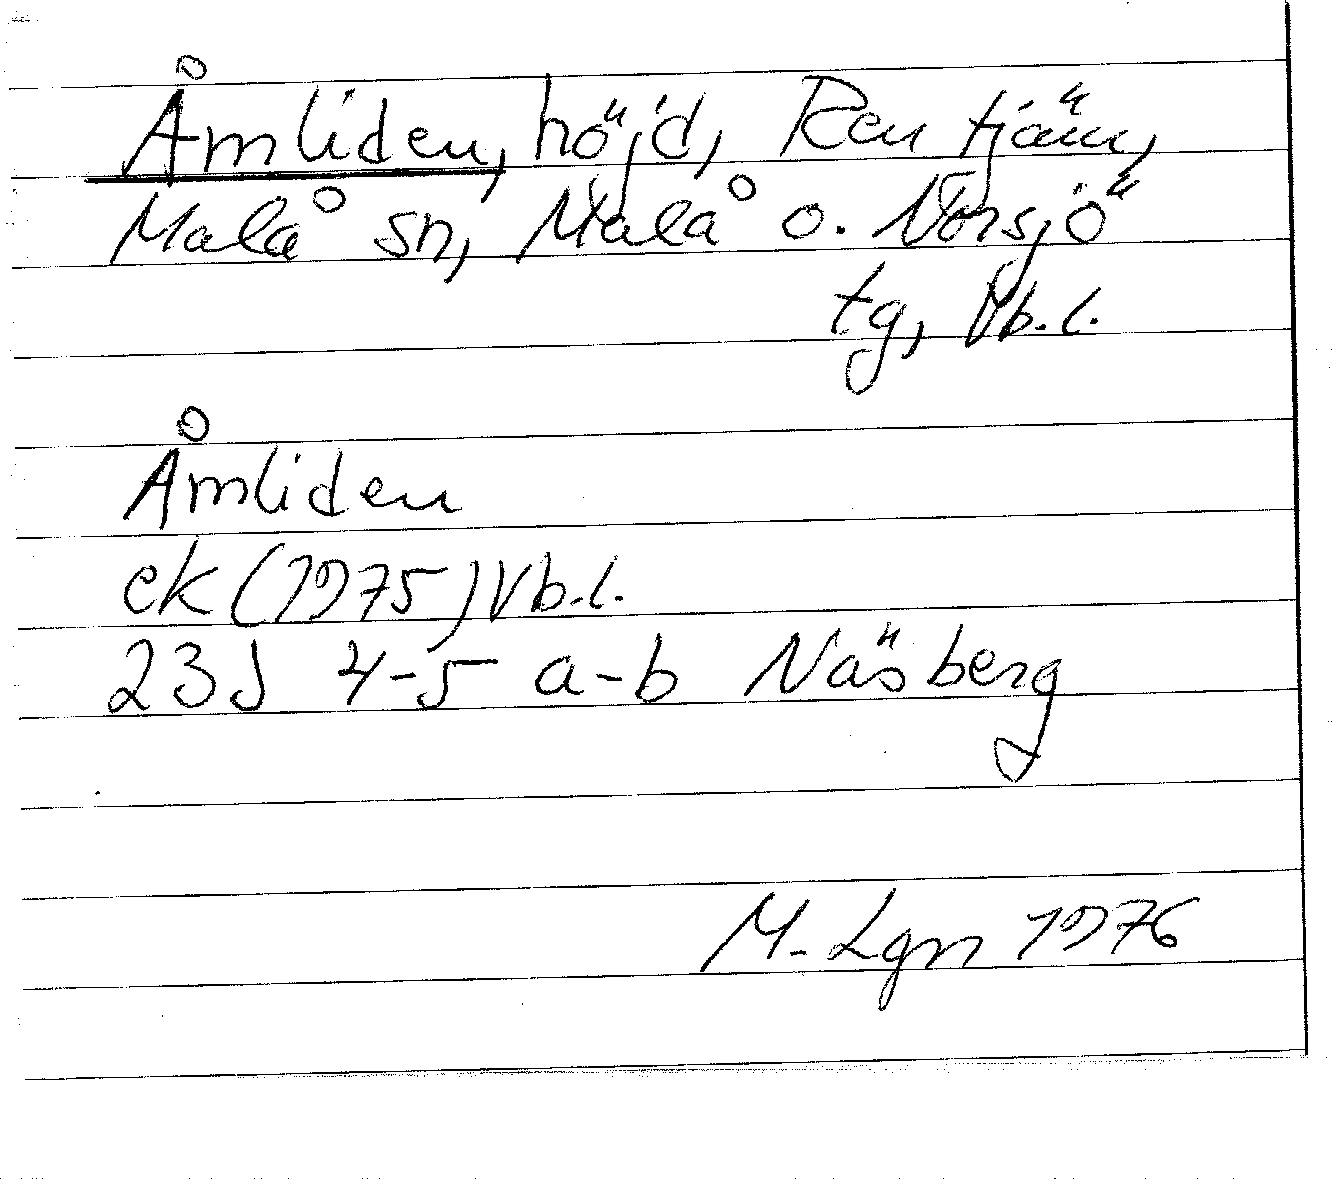 Åmliden, höjd, Rentjärn,
Malå sn, Malå o. Norsjö
tg, Vb.l.
Åmliden
ek (1975) Vb.l.
23J 4-5 a-b Näsberg
M. Lgn 1976